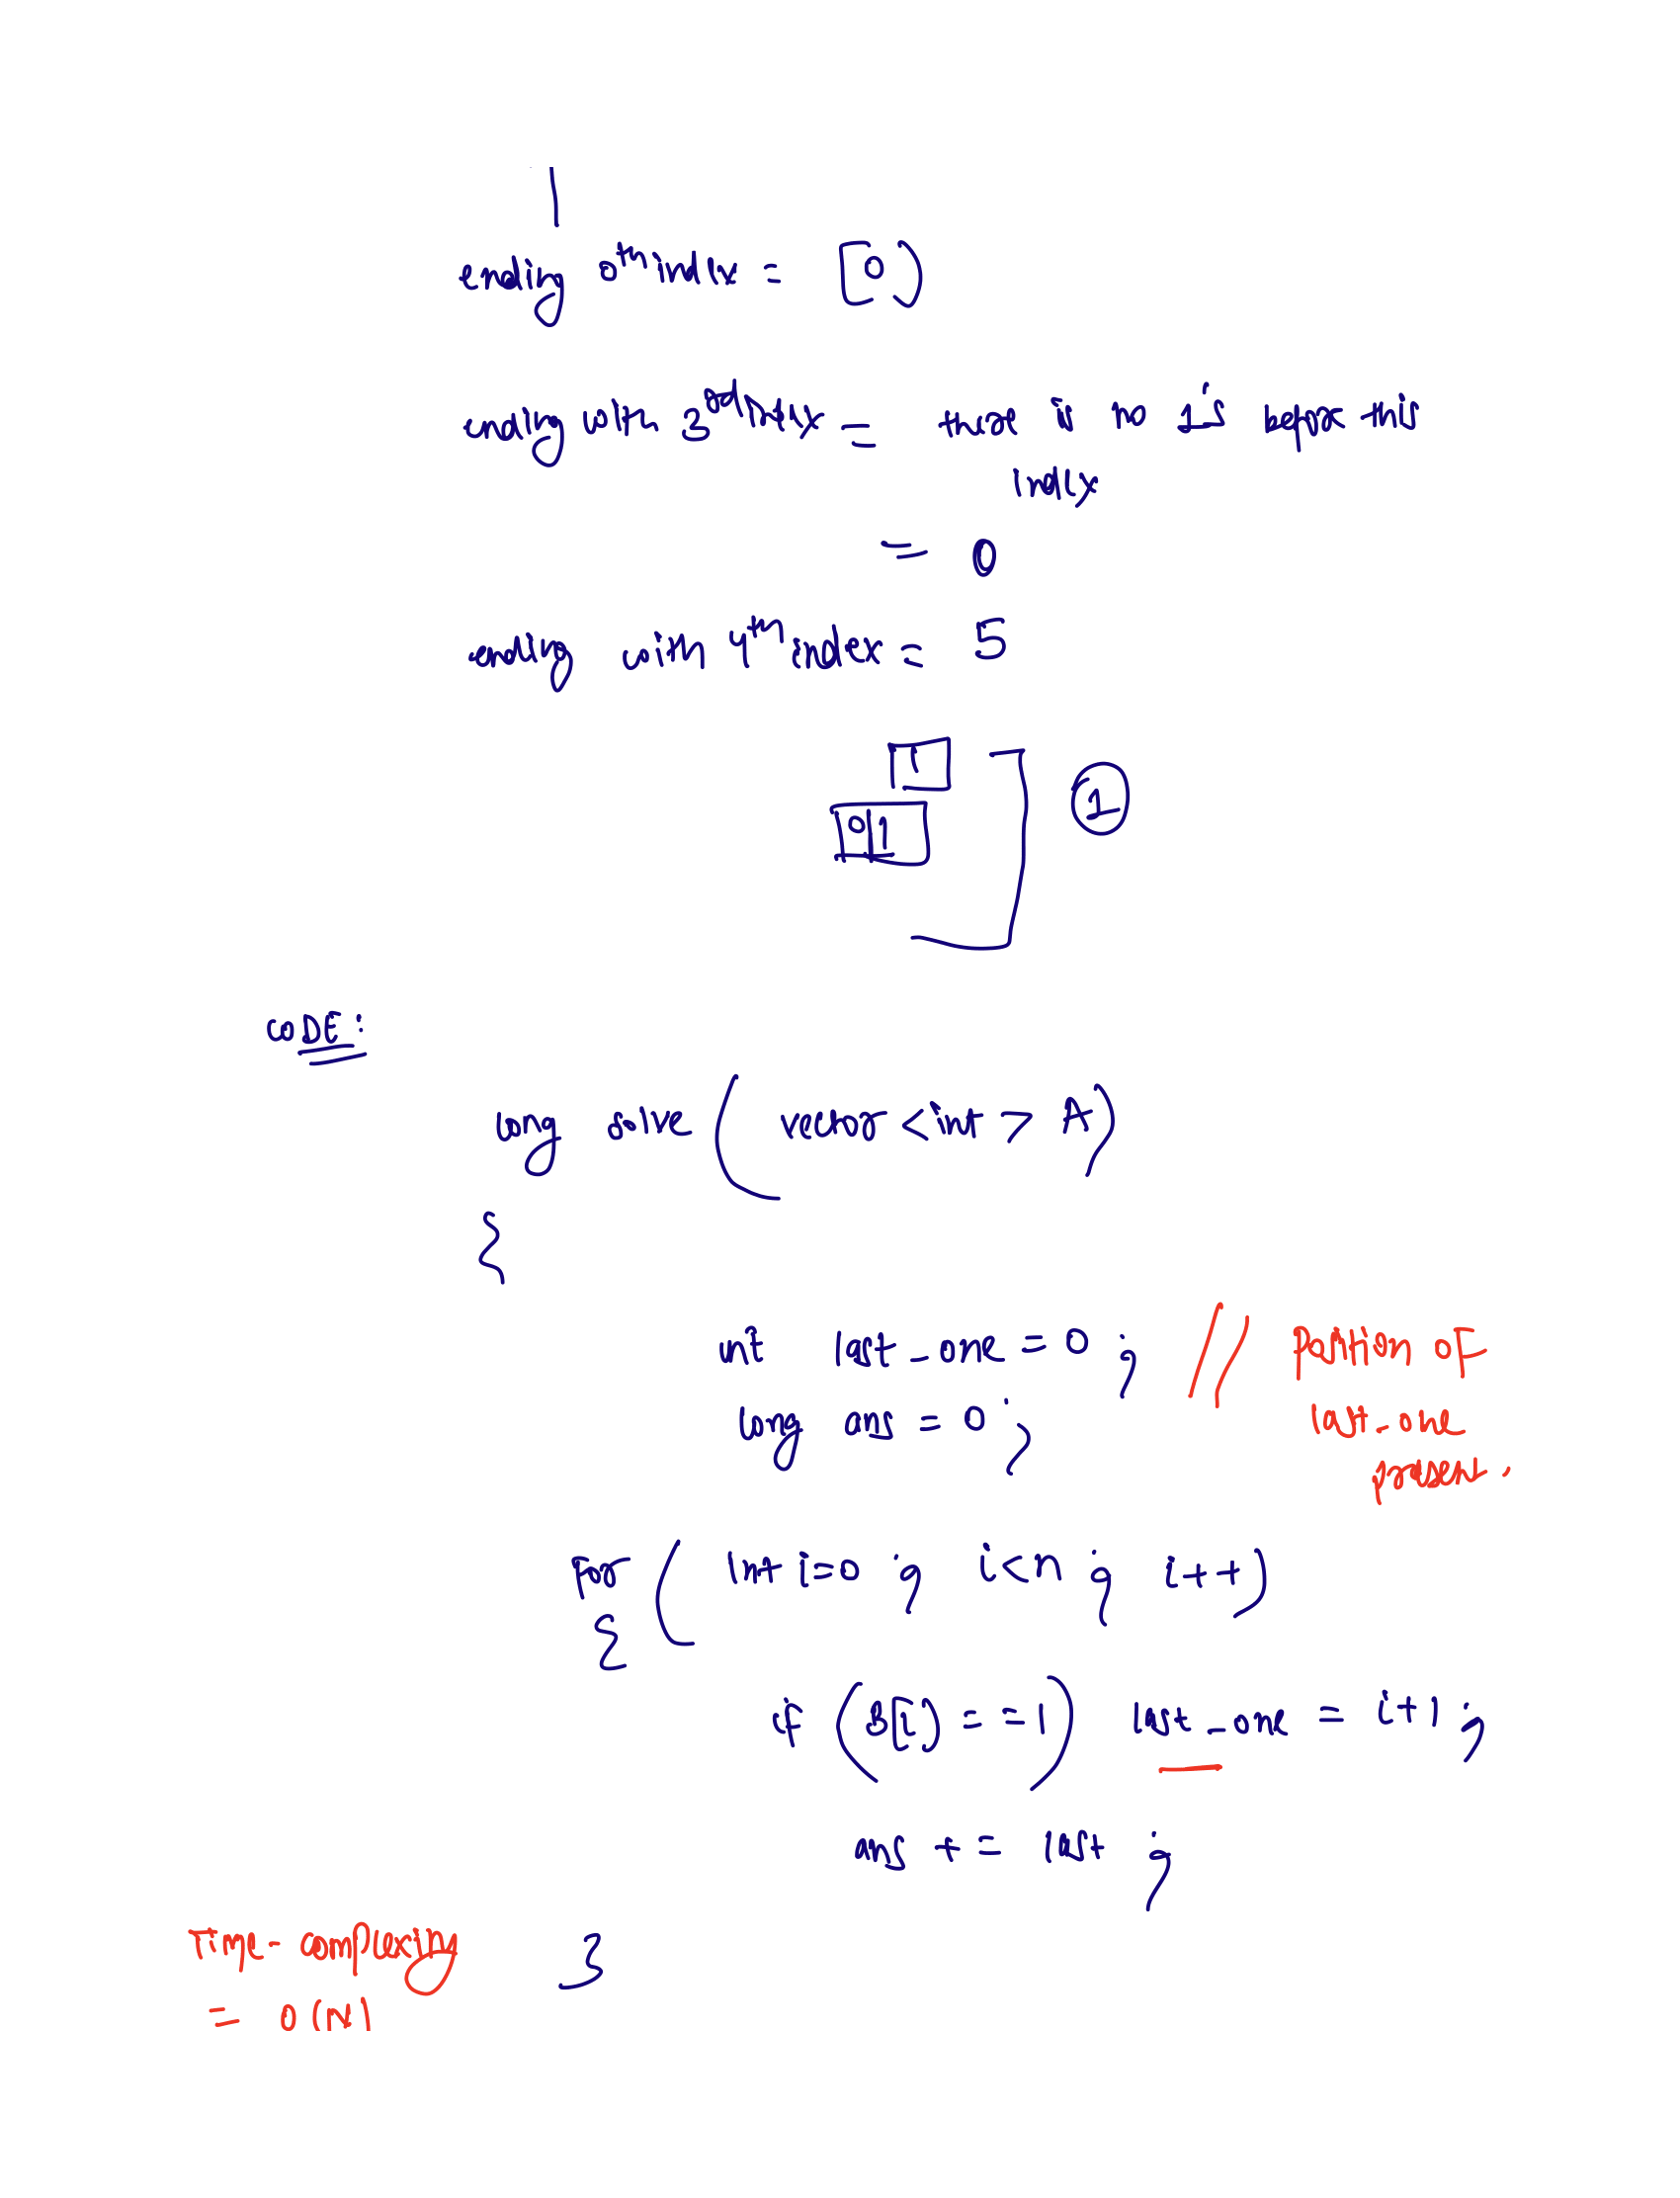 ending 0th index = [0]
ending with 3rd index = there is no 1's before this
index
= 0
ending with 4th index = 5
1
0 1
1
CODE:
long solve ( vector <int> A)
{
int last_one = 0 ; // Position of
last_one
present.
long ans = 0 ;
for ( int i=0 ; i<n ; i++)
{
if (B[i] == 1) last_one = i+1 ;
ans += last ;
}
Time-complexity
= O(N)